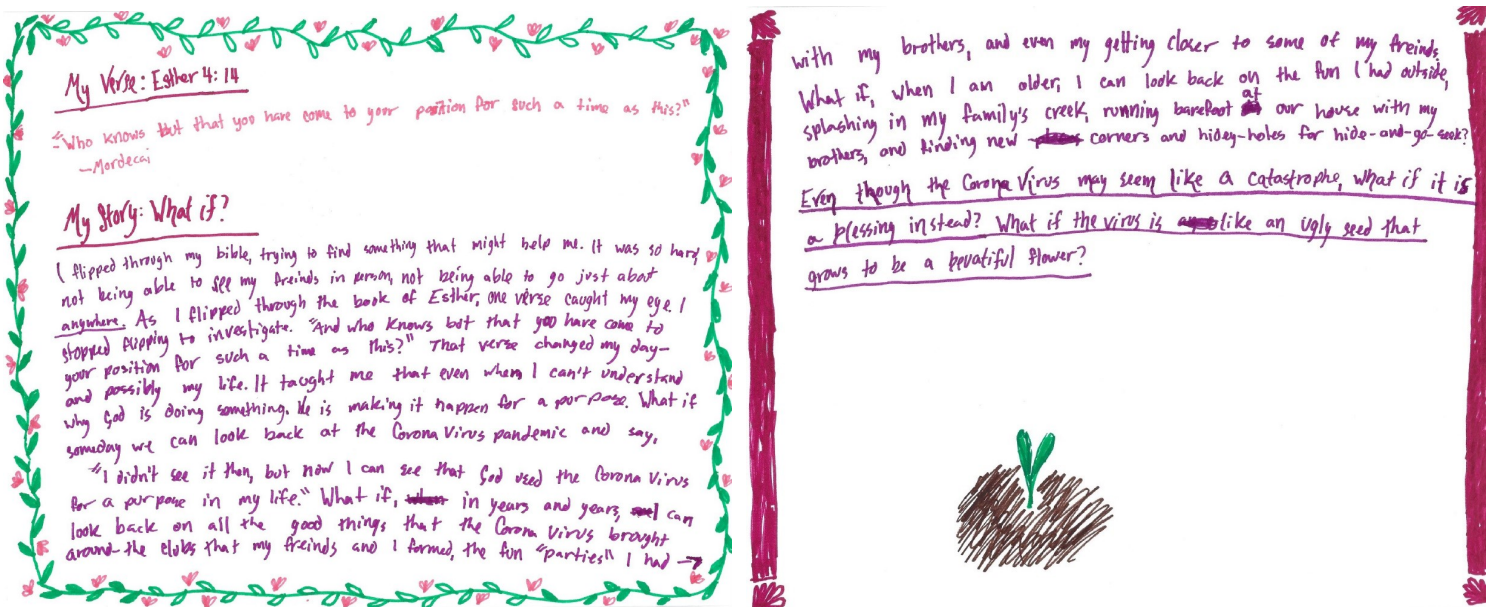 My Verse: Esther 4:14
"Who knows but that you have come to your position for such a time as this?"
-Mordecai
My Story: What if?
I flipped through my bible, trying to find something that might help me. It was so hard,
not being able to see my freinds in person, not being able to go just about
anywhere. As I flipped through the book of Esther, one verse caught my eye. I
stopped flipping to investigate. "And who knows but that you have come to
your position for such a time as this?" That verse changed my day-
and possibly my life. It taught me that even when I can't understand
why God is doing something. He is making it happen for a purpose. What if
someday we can look back at the Corona Virus pandemic and say,
"I didn't see it then, but now I can see that God used the Corona Virus
for a purpose in my life." What if, in years and years, I can
look back on all the good things that the Corona Virus brought
around-the clubs that my freinds and I formed, the fun "parties" I had →
with my brothers, and even my getting closer to some of my freinds.
What if, when I am older, I can look back on the fun I had outside,
splashing in my family's creek, running barefoot at our house with my
brothers, and finding new corners and hidey-holes for hide-and-go-seek?
Even though the Corona Virus may seem like a catastrophe, what if it is
a blessing instead? What if the virus is like an ugly seed that
grows to be a beuatiful flower?